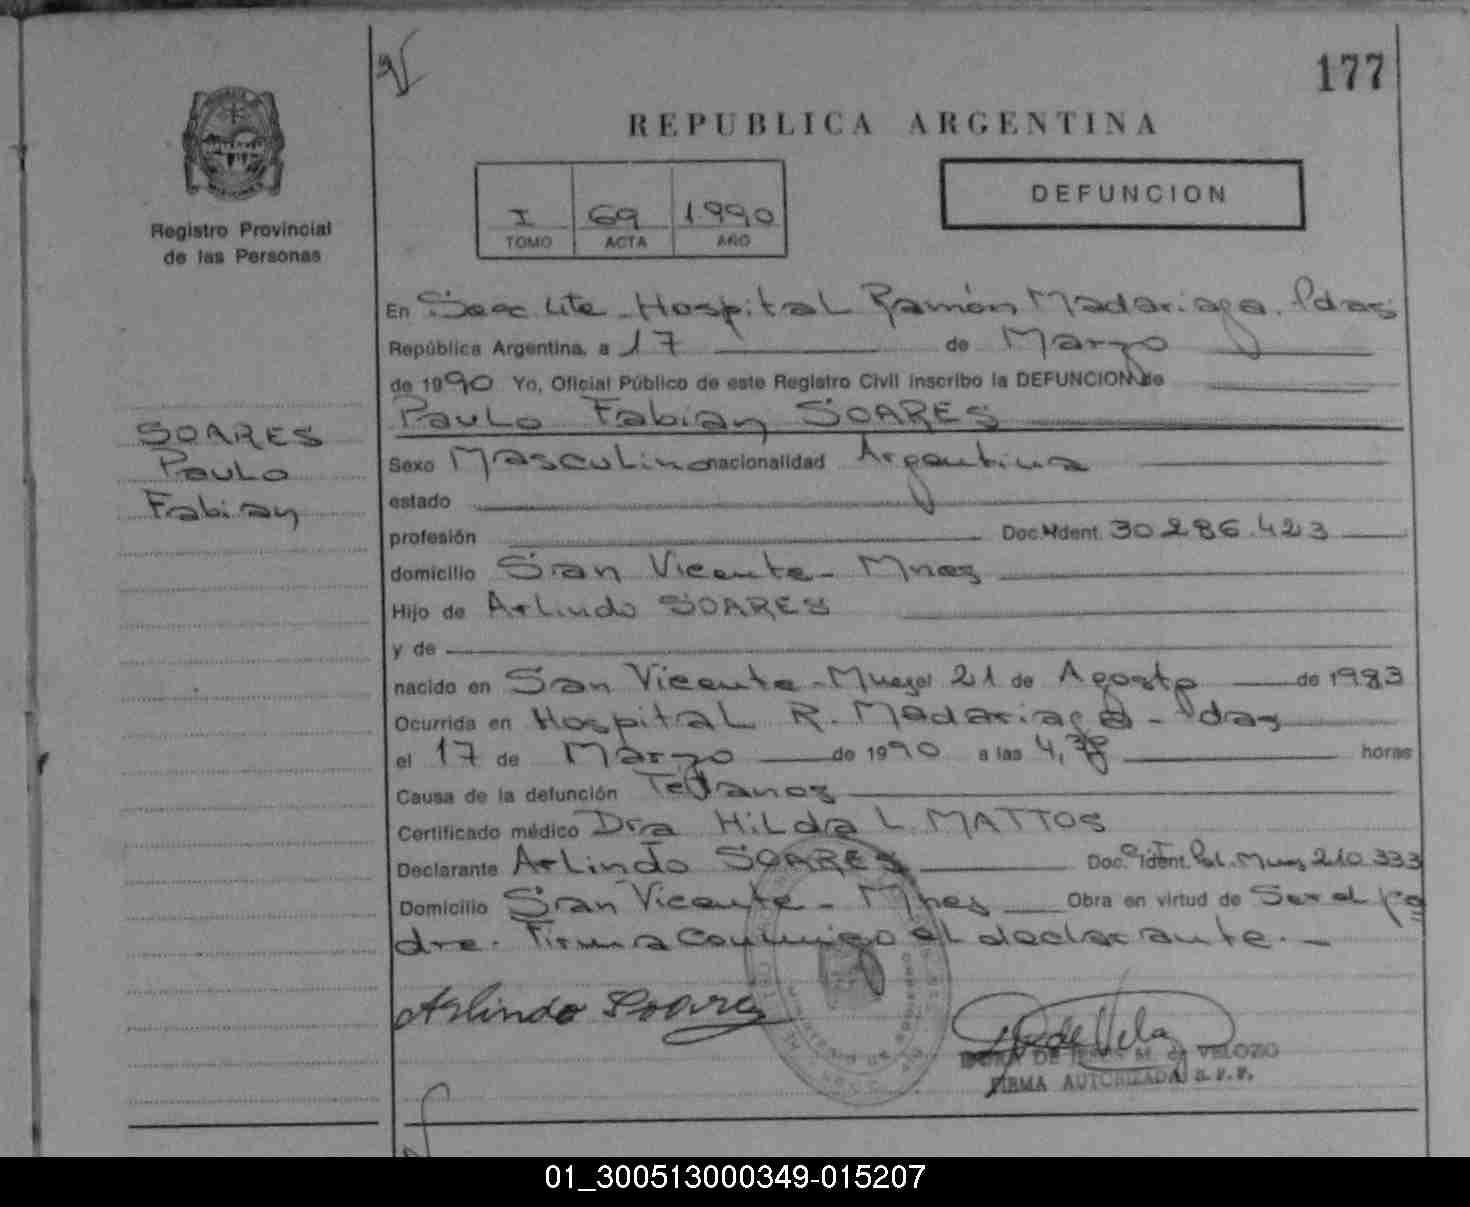 177
REPUBLICA ARGENTINA
DEFUNCION
I 69 1990
TOMO ACTA AÑO
Registro Provincial
de las Personas
En Secc 4te - Hospital Ramón Madariaga. Pdas
República Argentina, a 17 de Marzo
de 1990 Yo, Oficial Público de este Registro Civil inscribo la DEFUNCION de
Paulo Fabian SOARES
SOARES
Paulo
Fabian
Sexo Masculino nacionalidad Argentina
estado
profesión Doc. Ident. 30.286.423
domicilio San Vicente - Mnes
Hijo de Arlindo SOARES
y de
nacido en San Vicente - Mnes el 21 de Agosto de 1983
Ocurrida en Hospital R. Madariaga - Pdas
el 17 de Marzo de 1990 a las 4,38 horas
Causa de la defunción Tétanos
Certificado médico Dra Hilda L. MATTOS
Declarante Arlindo SOARES Doc. Ident. Pol. Mnes 210.333
Domicilio San Vicente - Mnes Obra en virtud de Ser el pa
dre. Firma conmigo el declarante. -
Arlindo Soares
M. de VELOZO
FIRMA AUTORIZADA
01_300513000349-015207